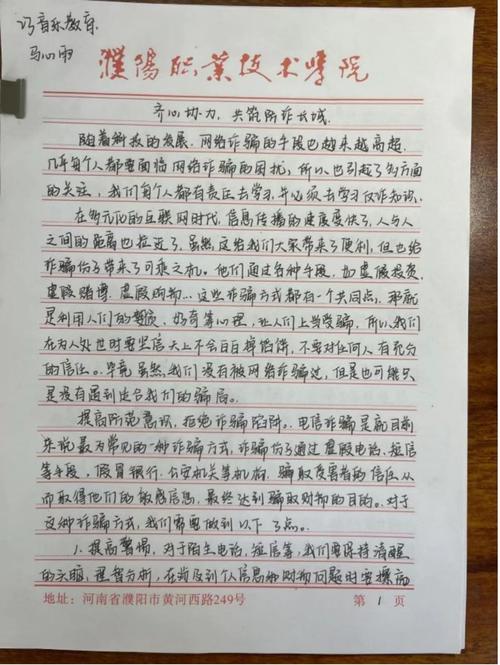 23音乐教育.
马心雨
濮阳职业技术学院
齐心协力,共筑防诈长城.
随着科技的发展,网络诈骗的手段也越来越高超.
几乎每个人都要面临网络诈骗的困扰,所以也引起了多方面
的关注,我们每个人都有责任去学习,并必须去学习反诈知识.
在多元化的互联网时代,信息传播的速度变快了,人与人
之间的距离也拉近了,虽然,这给我们大家带来了便利,但也给
诈骗份子带来了可乘之机。他们通过各种手段,如虚假投资.
虚假赌博.虚假购物...这些诈骗方式都有一个共同点,那就
是利用人们的 好奇等心理,让人们上当受骗,所以我们
在为人处世时要坚信天上不会白白掉馅饼,不要对任何人有充分
的信任。毕竟虽然我们没有被网络诈骗过,但是也可能只
是没有遇到适合我们的骗局。
提高防范意识,拒绝诈骗陷阱。电信诈骗是就目前
来说最为常见的一种诈骗方式,诈骗份子通过虚假电话,短信
等手段,假冒银行.公安机关等机构,骗取受害者的信任从
而取得他们的敏感信息,最终达到骗取财物的目的。对于
这种诈骗方式,我们需要做到以下3点。
1.提高警惕,对于陌生电话,短信等,我们要保持清醒
的头脑,理智分析,在涉及到个人信息和财物问题时要提高
地址:河南省濮阳市黄河西路249号
第 1 页